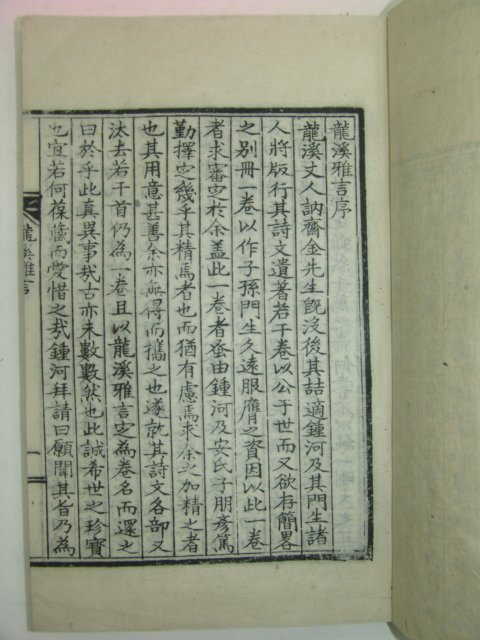 龍溪雅言序
龍溪丈人訥齋金先生旣沒後其喆適鍾河及其門生諸
人將版行其詩文遺著若干卷以公于世而又欲存簡畧
之別冊一卷以作子孫門生久遠服膺之資因以此一卷
者求審定於余盖此一卷者蚤由鍾河及安氏子朋彦篤
勤擇定幾乎其精焉者也而猶有慮焉求余之加精之者
也其用意甚善余亦無得而攜之也遂就其詩文各部又
汰去若干首仍為一卷且以龍溪雅言定為卷名而還之
曰於乎此真異事哉古亦未數數然也此誠希世之珍寶
也宜若何葆藏而愛惜之哉鍾河拜請曰願聞其旨乃為
龍溪雅言